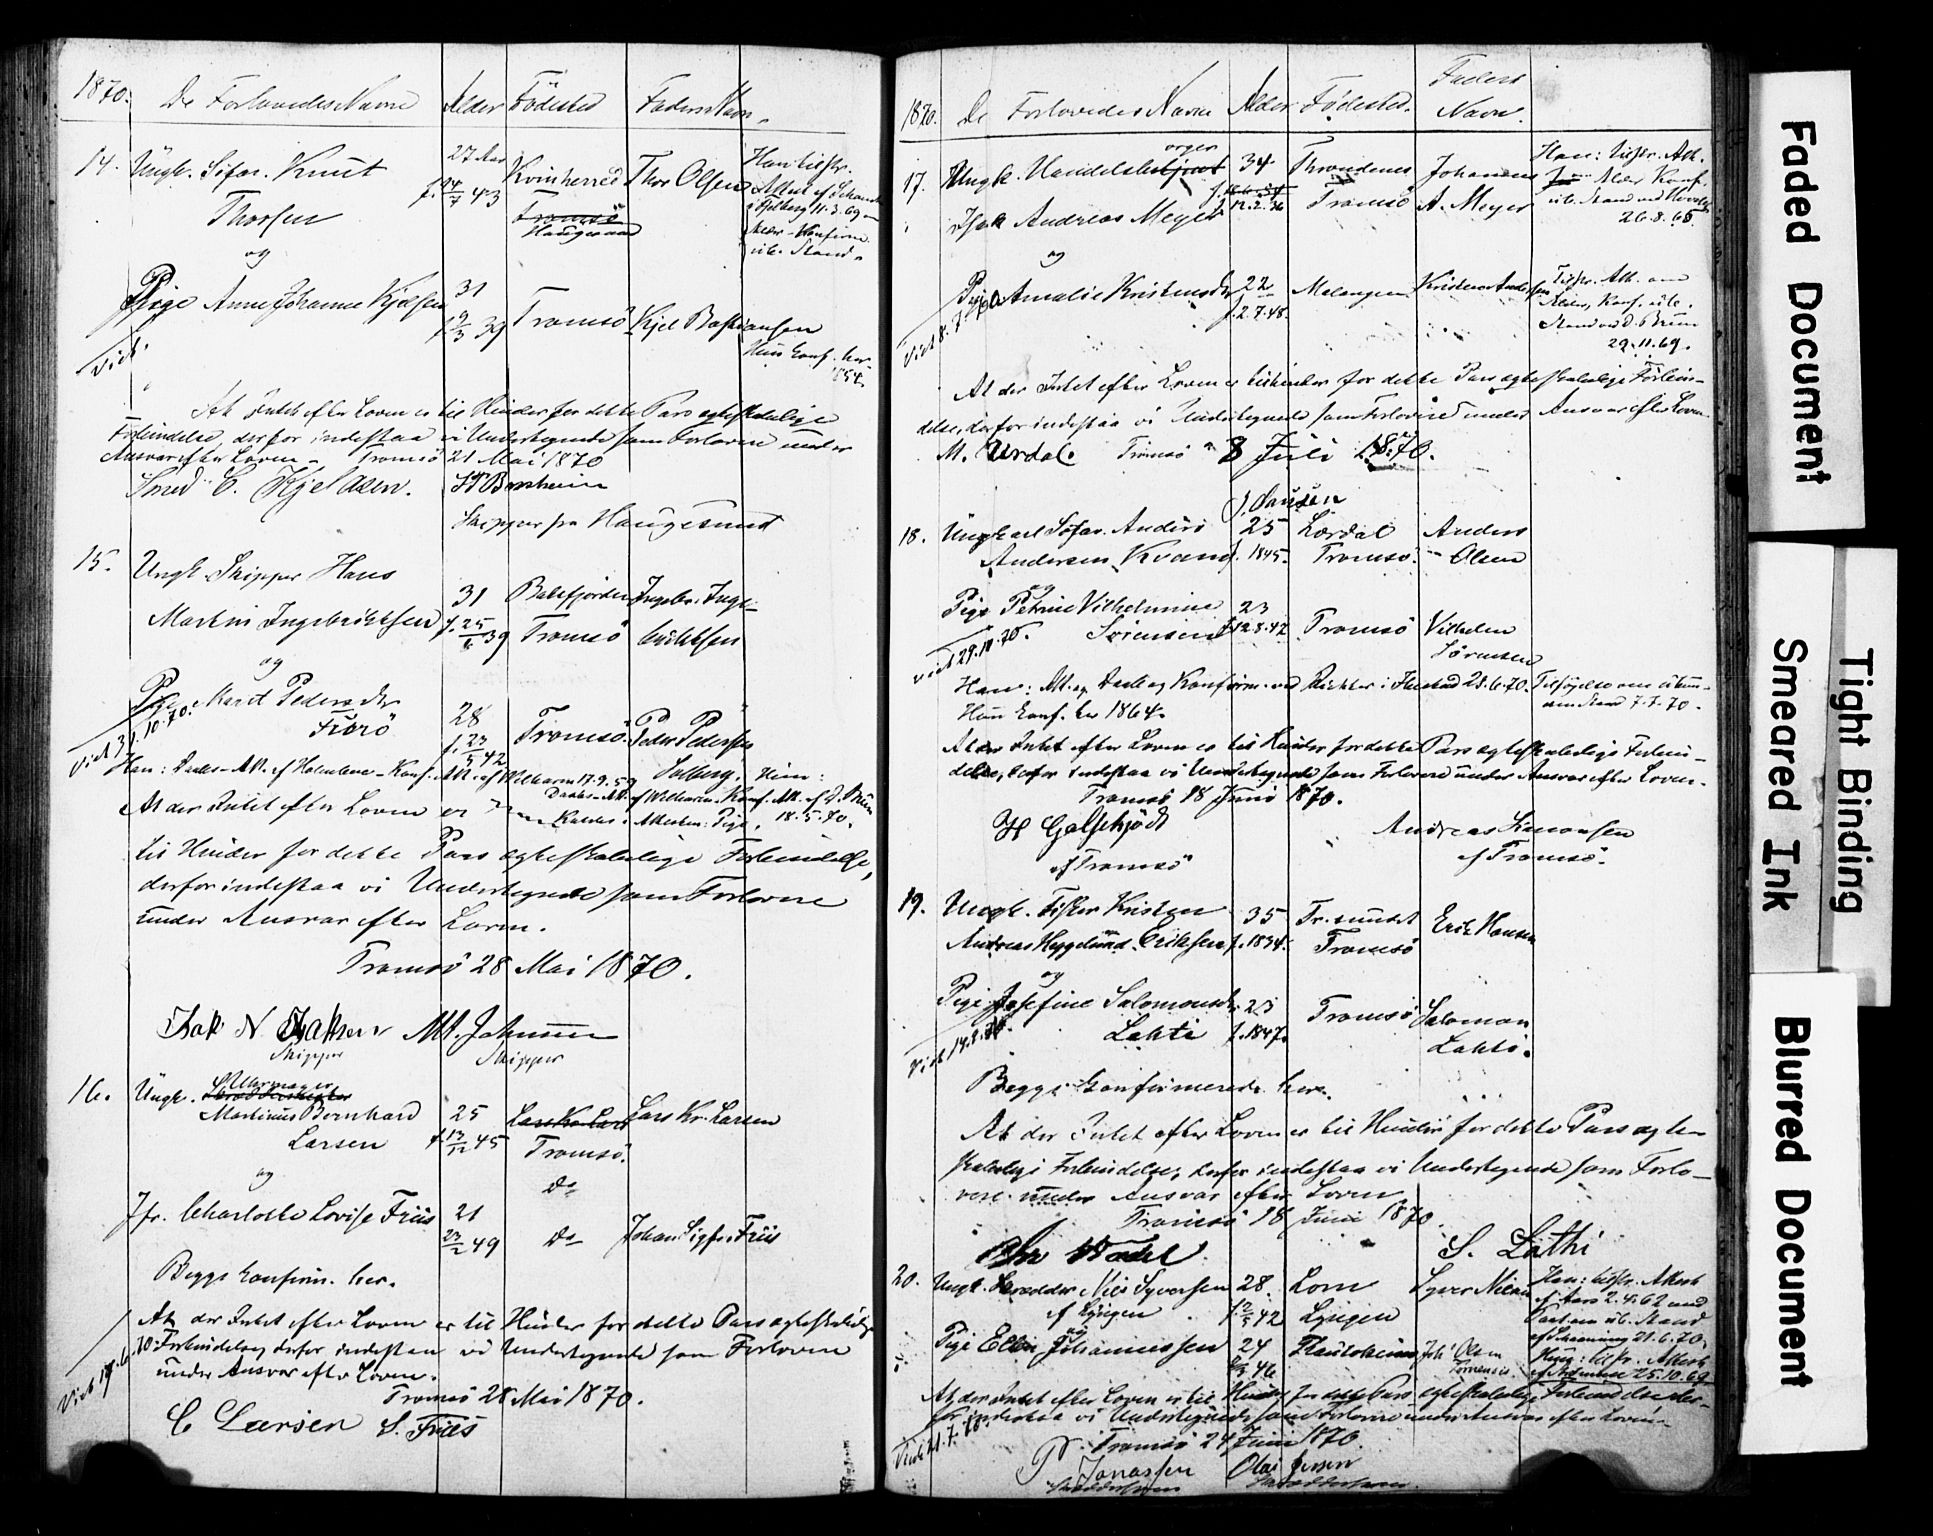 1870. De Forlovedes Navne Alder Födested Faders Navn.
14. Ungk. Söfar. Knut 27 Aar Kvinherred Thor Olsen
Thorsen f. 24/7 43 Tromsö Haugesund
Han tilstr.
Attest af
i Fjelberg 11.3.69
Alder - Konfirm.
ub. Stand.
og
Pige Anne Johanne Kjelsen 31 Tromsö Kjel Bastiansen
f 9/3 39
Viet.
Hun konf. her
1854.
At Intet efter Loven er til Hinder for dette Pars ægteskabelige
Forbindelse, derfor indestaa vi Undertegnede som Forlovere under
Ansvar efter Loven - Tromsö 21 Mai 1870
Smed C. Kjeldsen.
Skipper fra Haugesund
15. Ungk. Skipper Hans
Martin Ingebrigtsen 31 Balsfjorden Ingebr. Inge-
f. 25/6 39 Tromsö brigtsen
og
Pige Marit Pedersdtr 28 Tromsö Peder Pedersen
f. 23/5 42 Solberg.
Viet 31.10.70.
Han: Daabs-Att. af - Konf. Att. af 17.9.59 Hun:
Daabs-Att. af - Konf. Att. af D. Bruun
Attesten: Pige. 18.5.70.
At der Intet efter Loven er
til Hinder for dette Pars ægteskabelige Forbindelse,
derfor indestaa vi Undertegnede som Forlovere
under Ansvar efter Loven.
Tromsö 28 Mai 1870.
Isak N Isaksen M. Johnsen
Skipper Skipper
16. Ungk. Uhrmager
Martinus Bernhard 25 Lars Kr. Lars Lars Kr. Larsen
Larsen f. 13/12 45 Tromsö.
og do
Jfr. Charlotte Lovise Friis 21
23/2 49 do Johan Sigfr. Friis
Begge konfirm. her.
At der Intet efter Loven er til Hinder for dette Pars ægteskabelige
Forbindelse, derfor indestaa vi Undertegnede som Forlovere
under Ansvar efter Loven.
Tromsö 28 Mai 1870.
C Larsen S. Friis
1870. De Forlovedes Navne Alder Födested. Faders
Navn.
17. Ungk. Handelsborger 34 Throndenes Johannes
Isak Andreas Meyer f. 12.2.36 Tromsö A. Meyer
Han: tilstr. Att.
Alder, Konf.
ub. Stand ved
26.8.68.
og
Pige Amalie Kristensdtr 22 Malangen Kristen Andersen
f. 2.7.48.
Viet 8.7.70.
Tilstr. Att. om
Alder, Konf. ube.
Stand ved D. Bruun
29.11.69.
At der Intet efter Loven er til Hinder for dette Pars ægteskabelige Forbin-
delse, derfor indestaa vi Undertegnede som Forlovere under Ansvar efter Loven.
M. Urdal. Tromsö 8 Juli 1870.
J. Hansen
18. Ungkarl Söfar. Anders 25 Lærdal Anders
Andersen Kvam f. 1845. Tromsö. Olsen
og
Pige Petrine Vilhelmine 23
Sörensen f. 12.8.47 Tromsö Vilhelm
Sörensen
Viet 29.10.70.
Han: Att. og Daab og Konfirm. ved Richter i 23.6.70.
Stand 7.7.70.
Hun konf. her 1864.
At der Intet efter Loven er til Hinder for dette Pars ægteskabelige Forbin-
delse, derfor indestaa vi Undertegnede som Forlovere under Ansvar efter Loven.
Tromsö 18 Juni 1870.
H Galschjödt Andreas Simonsen
af Tromsö af Tromsö.
19. Ungk. Fisker Kristen 35 Tr. sundet Erik Hansen
Andreas Heggelund Eriksen f. 1834. Tromsö
og
Pige Josefine Salomonsdtr 23 Tromsö Salomon
Lahti f. 1847. Lahti.
Viet 14.8.70.
Begge konfirmerede her.
At der Intet efter Loven er til Hinder for dette Pars ægte-
skabelige Forbindelse, derfor indestaa vi Undertegnede som Forlo-
vere under Ansvar efter Loven.
Tromsö 18 Juni 1870.
S. Lathi
20. Ungk. Skrædder Nils Syversen 28. Lom Syver Nilsen
af Lyngen f. 2/5 42 Lyngen
Han: tilstr. Attest
af Aars 2.4.62 med
Paat. om ub. Stand
af 21.6.70.
og
Pige Ellen Johannessen 24 Joh. Olsen
46 Tornensis
Hun: tilstr. Attest
25.10.69
At der Intet efter Loven er til Hinder for dette Pars ægteskabelige Forbindelse der-
for indestaa vi Undertegnede som Forlovere under Ansvar efter Loven.
Viet 21.7.70.
Tromsö 24 Juni 1870.
P. Jonassen Olai Jensen
Faded Document
Smeared Ink
Tight Binding
Blurred Document